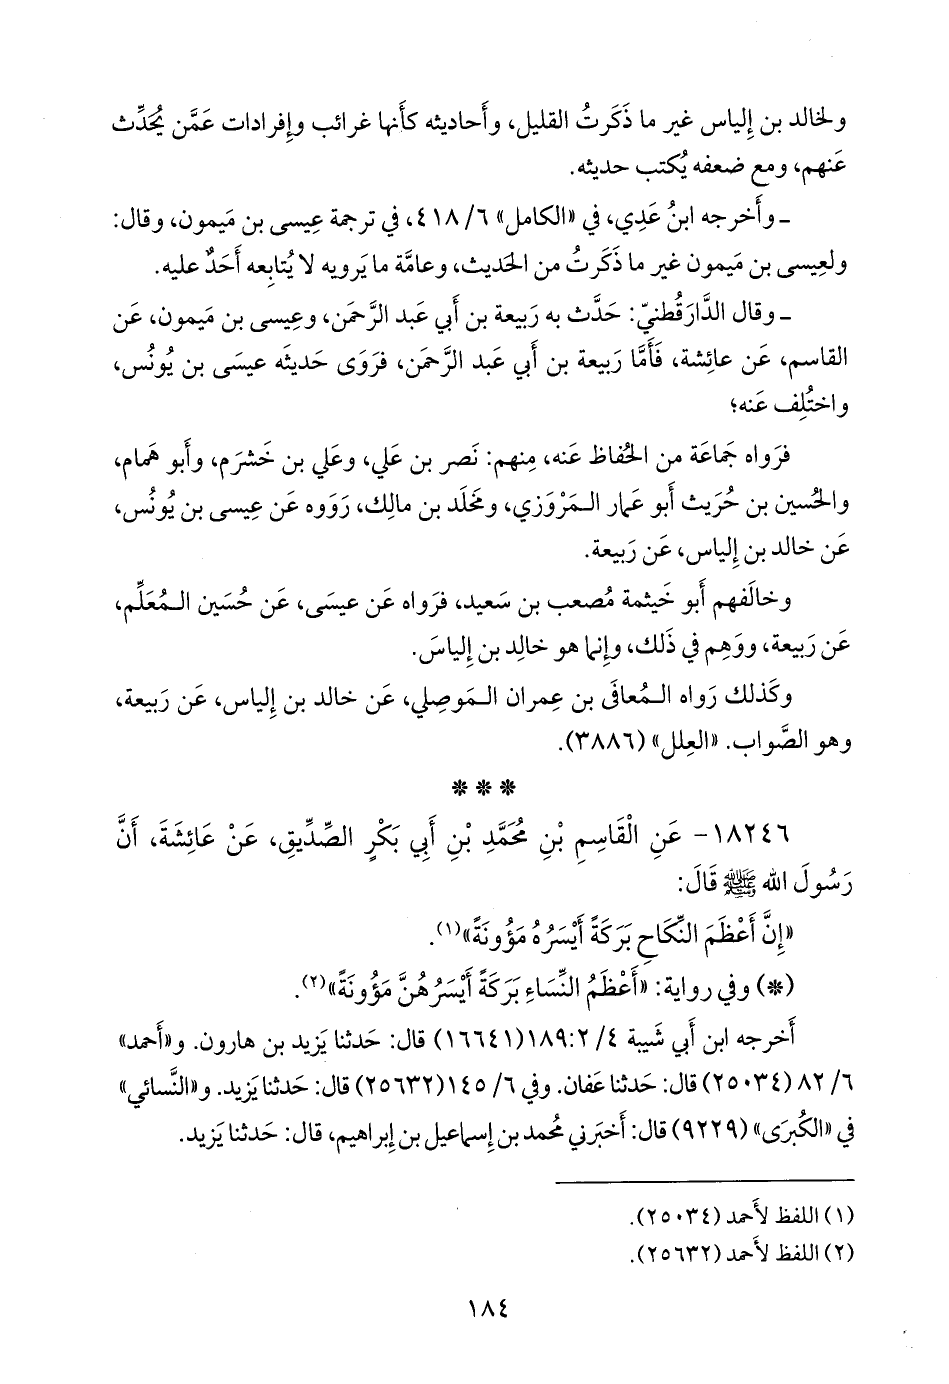 ولخالد بن إِلياس غير ما ذَكَرتُ القليل، وأَحاديثه كأَنها غرائب وإِفرادات عَمَّن يُحَدِّث
عَنهم، ومع ضعفه يُكتب حديثه.
ـ وأَخرجه ابنُ عَدِي، في «الكامل» ٦/ ٤١٨، في ترجمة عِيسى بن مَيمون، وقال:
ولعِيسى بن مَيمون غير ما ذَكَرتُ من الحَديث، وعامَّة ما يَرويه لا يُتابِعه أَحَدٌ عليه.
ـ وقال الدَّارَقُطنيّ: حَدَّث به رَبيعة بن أَبي عَبد الرَّحمَن، وعِيسى بن مَيمون، عَن
القاسم، عَن عائِشة، فَأَمَّا رَبيعة بن أَبي عَبد الرَّحمَن، فرَوَى حَديثَه عيسَى بن يُونُس،
واختُلِف عَنه؛
فرَواه جَماعَة من الحُفاظ عَنه، مِنهم: نَصر بن عَلي، وعَلي بن خَشرَم، وأَبو هَمام،
والحُسين بن حُرَيث أَبو عَمار المَرْوَزي، ومَخلَد بن مالِك، رَوَوه عَن عِيسى بن يُونُس،
عَن خالد بن إِلياس، عَن رَبيعة.
وخالَفهم أَبو خَيثمة مُصعب بن سَعيد، فرَواه عَن عيسَى، عَن حُسَين المُعَلِّم،
عَن رَبيعة، ووَهِم في ذَلك، وإِنما هو خالِد بن إِلياسَ.
وكَذلك رَواه المُعافَى بن عِمران المَوصِلي، عَن خالد بن إِلياس، عَن رَبيعة،
وهو الصَّواب. «العِلل» (٣٨٨٦).
* * *
١٨٢٤٦- عَنِ الْقَاسِمِ بْنِ مُحَمَّدِ بْنِ أَبِي بَكْرٍ الصِّدِّيقِ، عَنْ عَائِشَةَ، أَنَّ
رَسُولَ الله ﷺ قَالَ:
«إِنَّ أَعْظَمَ النِّكَاحِ بَرَكَةً أَيْسَرُهُ مَؤُونَةً»(١).
(*) وفي رواية: «أَعْظَمُ النِّسَاءِ بَرَكَةً أَيْسَرُهُنَّ مَؤُونَةً»(٢).
أَخرجه ابن أَبي شَيبة ٤/ ١٨٩:٢(١٦٦٤١) قال: حَدثنا يَزيد بن هارون. و«أَحمد»
٦/ ٨٢ (٢٥٠٣٤) قال: حَدثنا عَفان. وفي ٦/ ١٤٥(٢٥٦٣٢) قال: حَدثنا يَزيد. و«النَّسائي»
في «الكُبرَى» (٩٢٢٩) قال: أَخبَرني مُحمد بن إِسماعيل بن إِبراهيم، قال: حَدثنا يَزيد.
(١) اللفظ لأَحمد (٢٥٠٣٤).
(٢) اللفظ لأَحمد (٢٥٦٣٢).
١٨٤